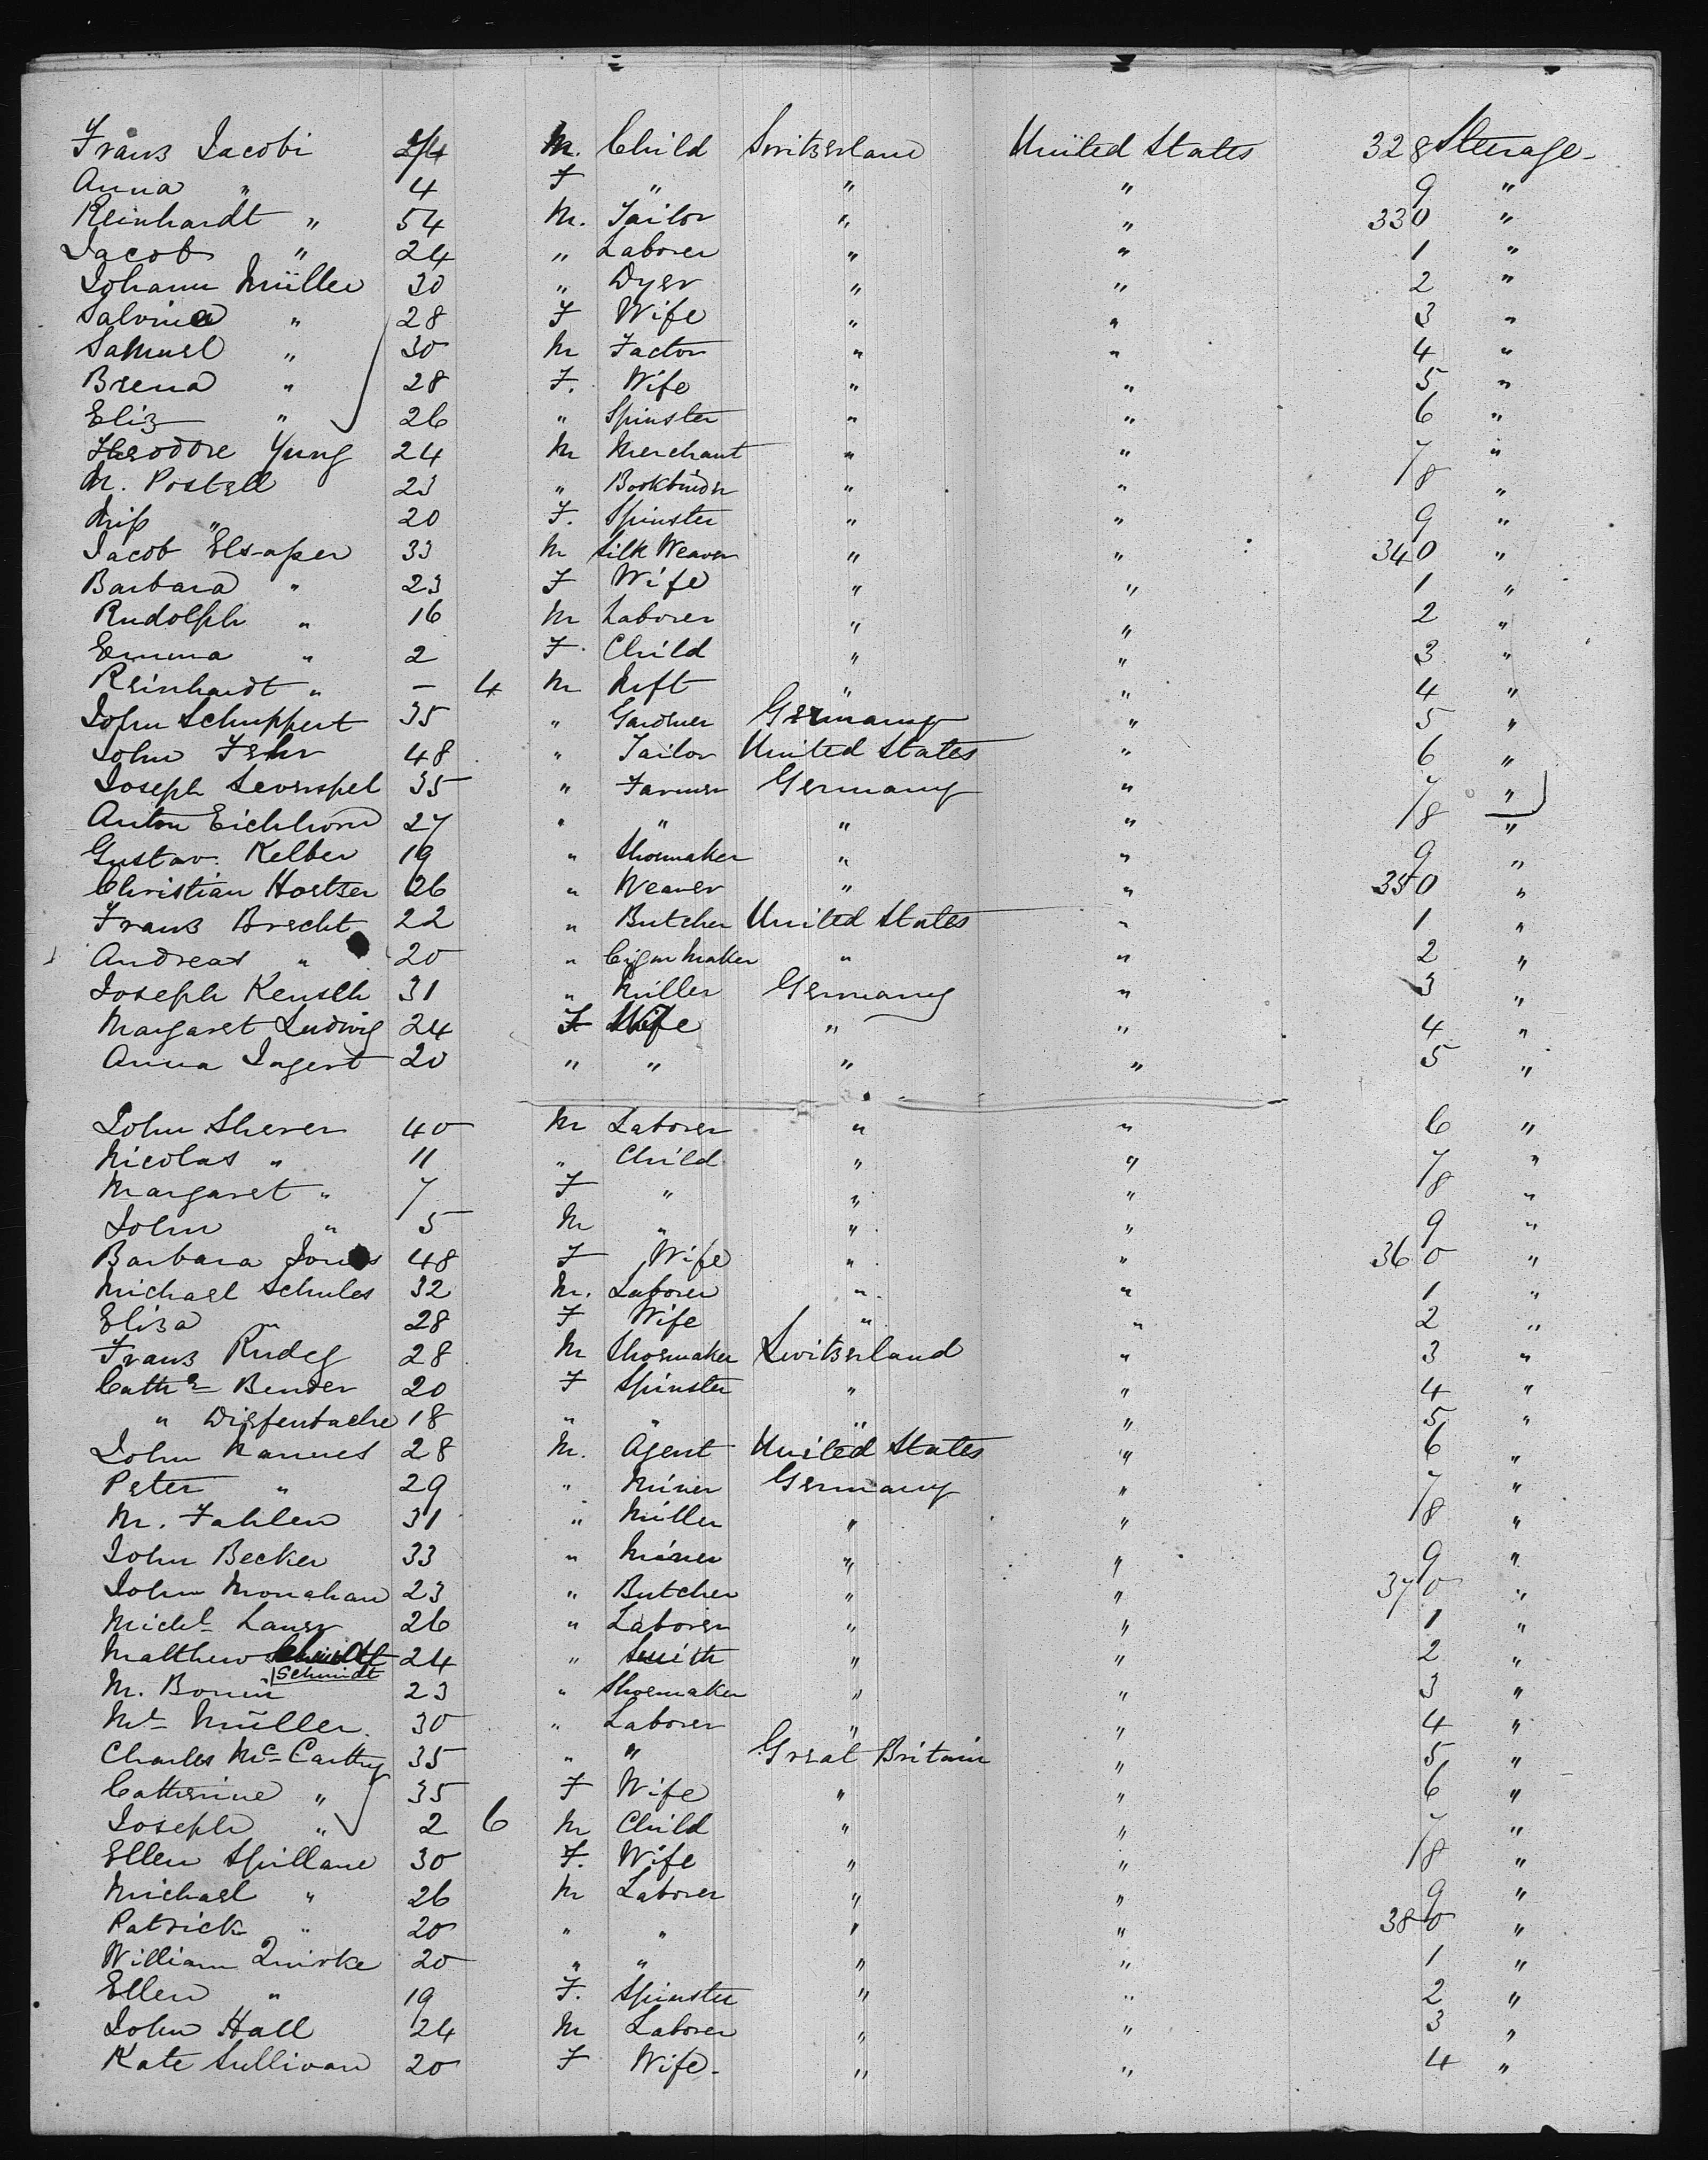 Franz Jacobi M. Child Switzerland United States 328 Steerage
Anna " 4 F " " " 9 "
Reinhardt " 54 M. Tailor " " 330 "
Jacob " 24 " Laborer " " 1 "
Johann Müller 30 " Dyer " " 2 "
Salvina " 28 F Wife " " 3 "
Samuel " 30 M Factor " " 4 "
Brena " 28 F. Wife " " 5 "
Eliz " 26 " Spinster " " 6 "
Theodore Yung 24 M Merchant " " 7 "
M. Postell 23 " Bookbinder " " 8 "
Miss " 20 F. Spinster " " 9 "
Jacob Elsasser 33 M Silk Weaver " " 340 "
Barbara " 23 F Wife " " 1 "
Rudolph " 16 M Laborer " " 2 "
Emma " 2 F. Child " " 3 "
Reinhardt " – 4 M Inft " " 4 "
John Schuppert 35 " Gardner Germany " 5 "
John Fehr 48 " Tailor United States " 6 "
Joseph Sevenspel 35 " Farmer Germany " 7 "
Anton Eichhorn 27 " " " " 8 "
Gustav. Kelber 19 " Shoemaker " " 9 "
Christian Hoetzer 26 " Weaver " " 350 "
Franz Brecht 22 " Butcher United States " 1 "
Andreas " 20 " Cigar Maker " " 2 "
Joseph Keusch 31 " Miller Germany " 3 "
Margaret Ludwig 24 F Wife " " 4 "
Anna Ingert 20 " " " " 5 "
John Sherer 40 M Laborer " " 6 "
Nicolas " 11 " Child " " 7 "
Margaret " 7 F " " " 8 "
John " 5 M " " " 9 "
Barbara Jones 48 F Wife " " 360 "
Michael Schules 32 M. Laborer " " 1 "
Eliza " 28 F Wife " " 2 "
Franz Rudeg 28 M Shoemaker Switzerland " 3 "
Cathe Bender 20 F Spinster " " 4 "
" Diefenbache 18 " " " " 5 "
John Nannes 28 M. Agent United States " 6 "
Peter " 29 " Miner Germany " 7 "
M. Fahlen 31 " Miller " " 8 "
John Becker 33 " Miner " " 9 "
John Monahan 23 " Butcher " " 370 "
Michl Lauer 26 " Laborer " " 1 "
Matthew Schmidt 24 " Smith " " 2 "
M. Bonin 23 " Shoemaker " " 3 "
Mt Müller 30 " Laborer " " 4 "
Charles McCarthy 35 " " Great Britain " 5 "
Catherine " 35 F Wife " " 6 "
Joseph " 2 6 M Child " " 7 "
Ellen Spillane 30 F. Wife " " 8 "
Michael " 26 M Laborer " " 9 "
Patrick " 20 " " " " 380 "
William Quirke 20 " " " " 1 "
Ellen " 19 F. Spinster " " 2 "
John Hall 24 M Laborer " " 3 "
Kate Sullivan 20 F Wife " " 4 "